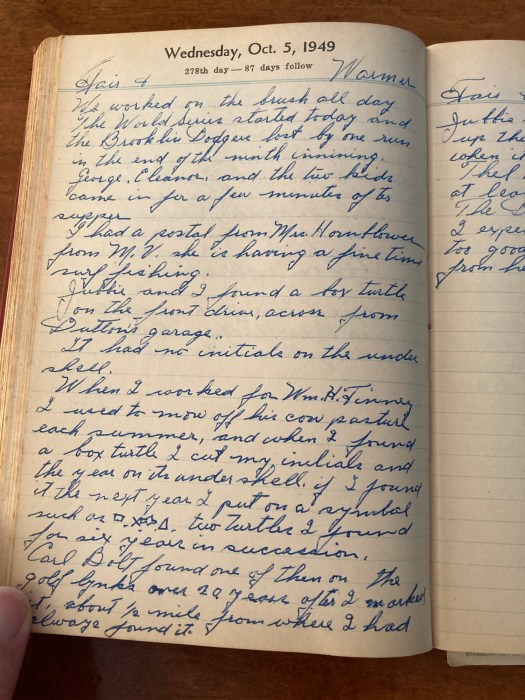 Wednesday, Oct. 5, 1949
278th day — 87 days follow
Fair & Warmer
We worked on the brush all day
The World Series started today and
the Brooklin Dodgers lost by one run
in the end of the ninth innining.
George, Eleanor, and the two kids
came in for a few minutes after
supper
I had a postal from Mrs Hornblower
from M.V. she is having a fine time
surf fishing.
Jubbie and I found a box turtle
on the front drive, across from
Dutton's garage.
It had no initials on the under
shell.
When I worked for Wm. H. Finney
I used to mow off his cow pasture
each summer, and when I found
a box turtle I cut my initials and
the year on its under shell. if I found
it the next year I put on a symbol
such as □. Δ. two turtles I found
for six years in succession.
Carl Bolt found one of them on the
golf lynks over 20 years after I marked
it, about ½ mile from where I had
always found it.
Fair &
Jubbie
up the
when it
The
at lea
The D
I expe
too good
from he